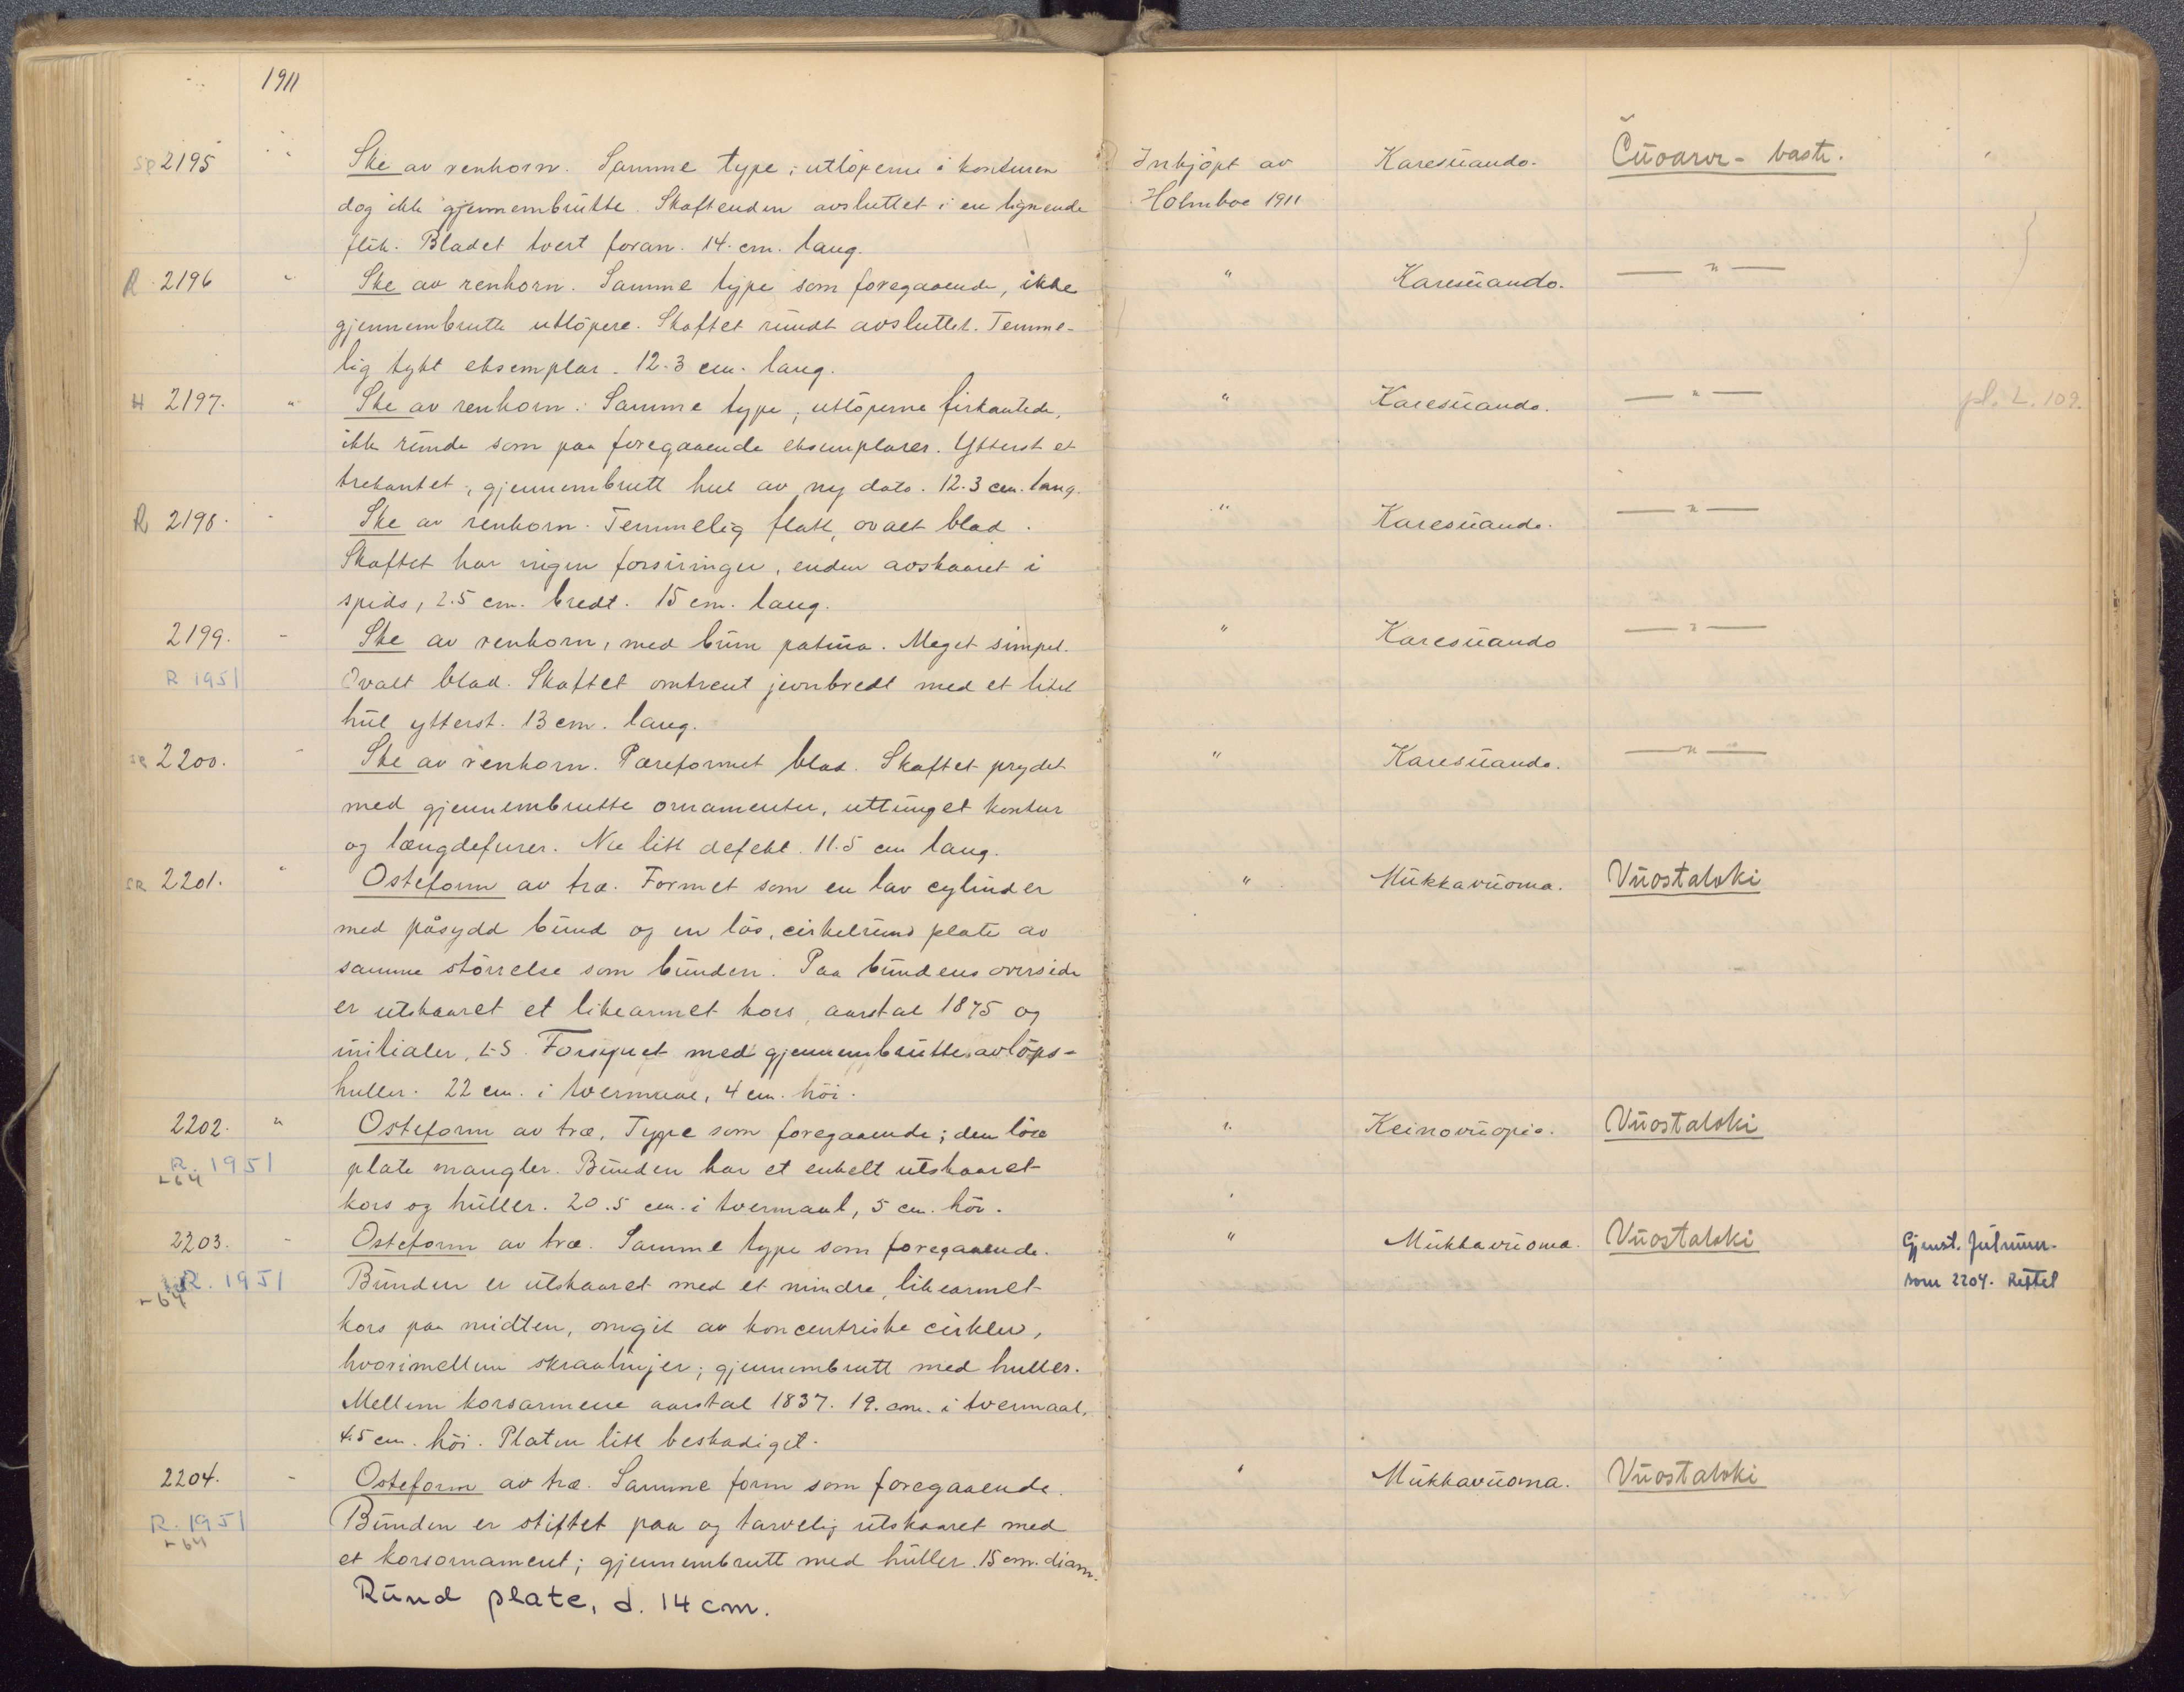 1911
sp 2195 " Ske av renhorn. Samme type; utlöperne i konturen Inkjöpt av Karesüando. Čüoarvr - baste.
dog ikke gjennembrütte. Skaftenden avsluttet i en lignende Holmboe 1911
flik. Bladet tvert foran. 14 cm. lang.
R 2196 " Ske av renhorn. Samme type som foregaaende, ikke " Karesüando. — " —
gjennembrutte utlöpere. Skaftet rundt avsluttet. Temme-
lig tykt eksemplar. 12.3 cm. lang.
H 2197. " Ske av renhorn. Samme type, utlöperne firkantede, " Karesüando. — " — pl. L. 109.
ikke runde som paa foregaaende eksemplarer. Ytterst et
trekantet, gjennembrutt hul av ny dato. 12.3 cm. lang.
R 2198. " Ske av renhorn. Temmelig flatt, ovalt blad. " Karesüando. — " —
Skaftet har ingen forsiringer, enden avskaaret i
spids, 2.5 cm. bredt. 15 cm. lang.
2199. " Ske av renhorn, med brün patina. Meget simpel. " Karesüando — " —
R 1951 Ovalt blad. Skaftet omtrent jevnbredt med et litet
hül ytterst. 13 cm. lang.
2200. " Ske av renhorn. Pæreformet blad. Skaftet prydet " Karesüando. — " —
med gjennembrutte ornamenter, uttünget kontur
og længdefurer. Nu litt defekt. 11.5 cm lang.
2201. " Osteform av træ. Formet som en lav cylinder " Mükkavüoma. Vüostalski
med påsydd bünd og en lös, cirkelründ plate av
samme störrelse som bünden. Paa bündens overside
er utskaaret et likearmet kors, aarstal 1875 og
initialer, LS. Forsynet med gjennembrüttes avlöps-
huller. 22 cm. i tvermaal, 4 cm. höi.
2202. " Osteform av træ. Type som foregaaende; den löse " Keinovüopio. Vüostalski
R. 1951 plate mangler. Bünden har et enkelt utskaaret
+64
kors og hüller. 20.5 cm. i tvermaal, 5 cm. höi.
2203. " Osteform av træ. Samme type som foregaaende. " Mükkavüoma. Vüostalski Gjenst.
R. 1951 Bünden er utskaaret med et mindre, likearmet som 2204. Rettet
+64
kors paa midten, omgit av koncentriske cirkler,
hvorimellem skraalinjer; gjennembrutt med huller.
Mellem korsarmene aarstal 1837. 19. cm. i tvermaal,
4.5 cm. höi. Platen litt beskadiget.
2204. " Osteform av træ. Samme form som foregaaende. " Mükkavüoma. Vüostalski
R. 1951 Bünden er stiftet paa og tarvelig utskaaret med
+64
et korsornament; gjennembrutt med hüller. 15 cm. diam.
Ründ plate, d. 14 cm.